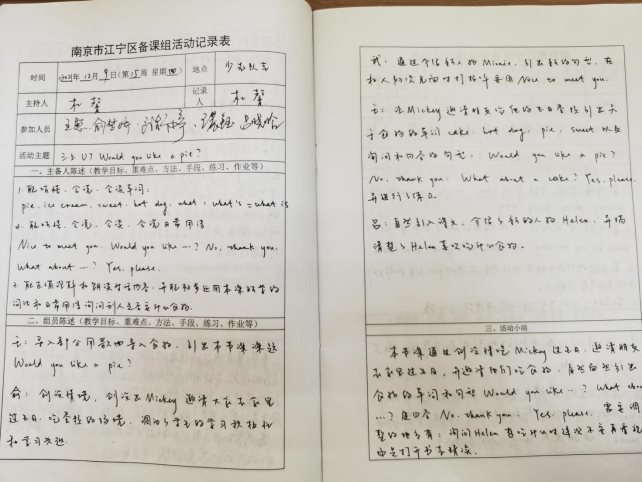 南京市江宁区备课组活动记录表
时间 2021年12月9日(第15周 星期四) 地点 少先队室
主持人 记录人
参加人员
活动主题 三上 U7 Would you like a pie?
一、主备人陈述（教学目标、重难点、方法、手段、练习、作业等）
1. 能听懂、会说、会读单词:
pie, ice cream, sweet, hot dog, what, what's = what is
2. 能听懂、会说、会读、会用日常用语
Nice to meet you. Would you like …? No, thank you.
What about …? Yes, please.
3. 能正确理解和朗读对话内容，并能初步运用本课所学的
词汇和日常用语询问别人是否要什么食物。
二、组员陈述（教学目标、重难点、方法、手段、练习、作业等）
王：导入部分用歌曲导入食物，引出本节课课题
Would you like a pie?
俞：创设情境，创设出Mickey邀请大家去家里
过生日，吃蛋糕的场境，调动了学生的学习积极性
和学习兴趣
通过介绍新人物 Minnie，引出新的句型，在
和人初次见面时打招呼要用 Nice to meet you.
王：从Mickey邀请朋友吃他的生日蛋糕引出关
于食物的单词 cake, hot dog, pie, sweet 以及
询问和回答的句型， Would you like a pie?
No, thank you. What about a cake? Yes, please.
并进行了练习。
吕：自然引入课文，介绍了新的人物 Helen，并搞
清楚了Helen喜欢吃什么食物。
三、活动小结
本节课通过创设情境 Mickey 过生日，邀请朋友
去家里过生日，并邀请他们吃食物，自然而然引出
食物的单词和句型 Would you like …? What about
…? 及回答 No, thank you. Yes, please. 需要调
整的地方有：询问Helen喜吃什么时建议不要再看视